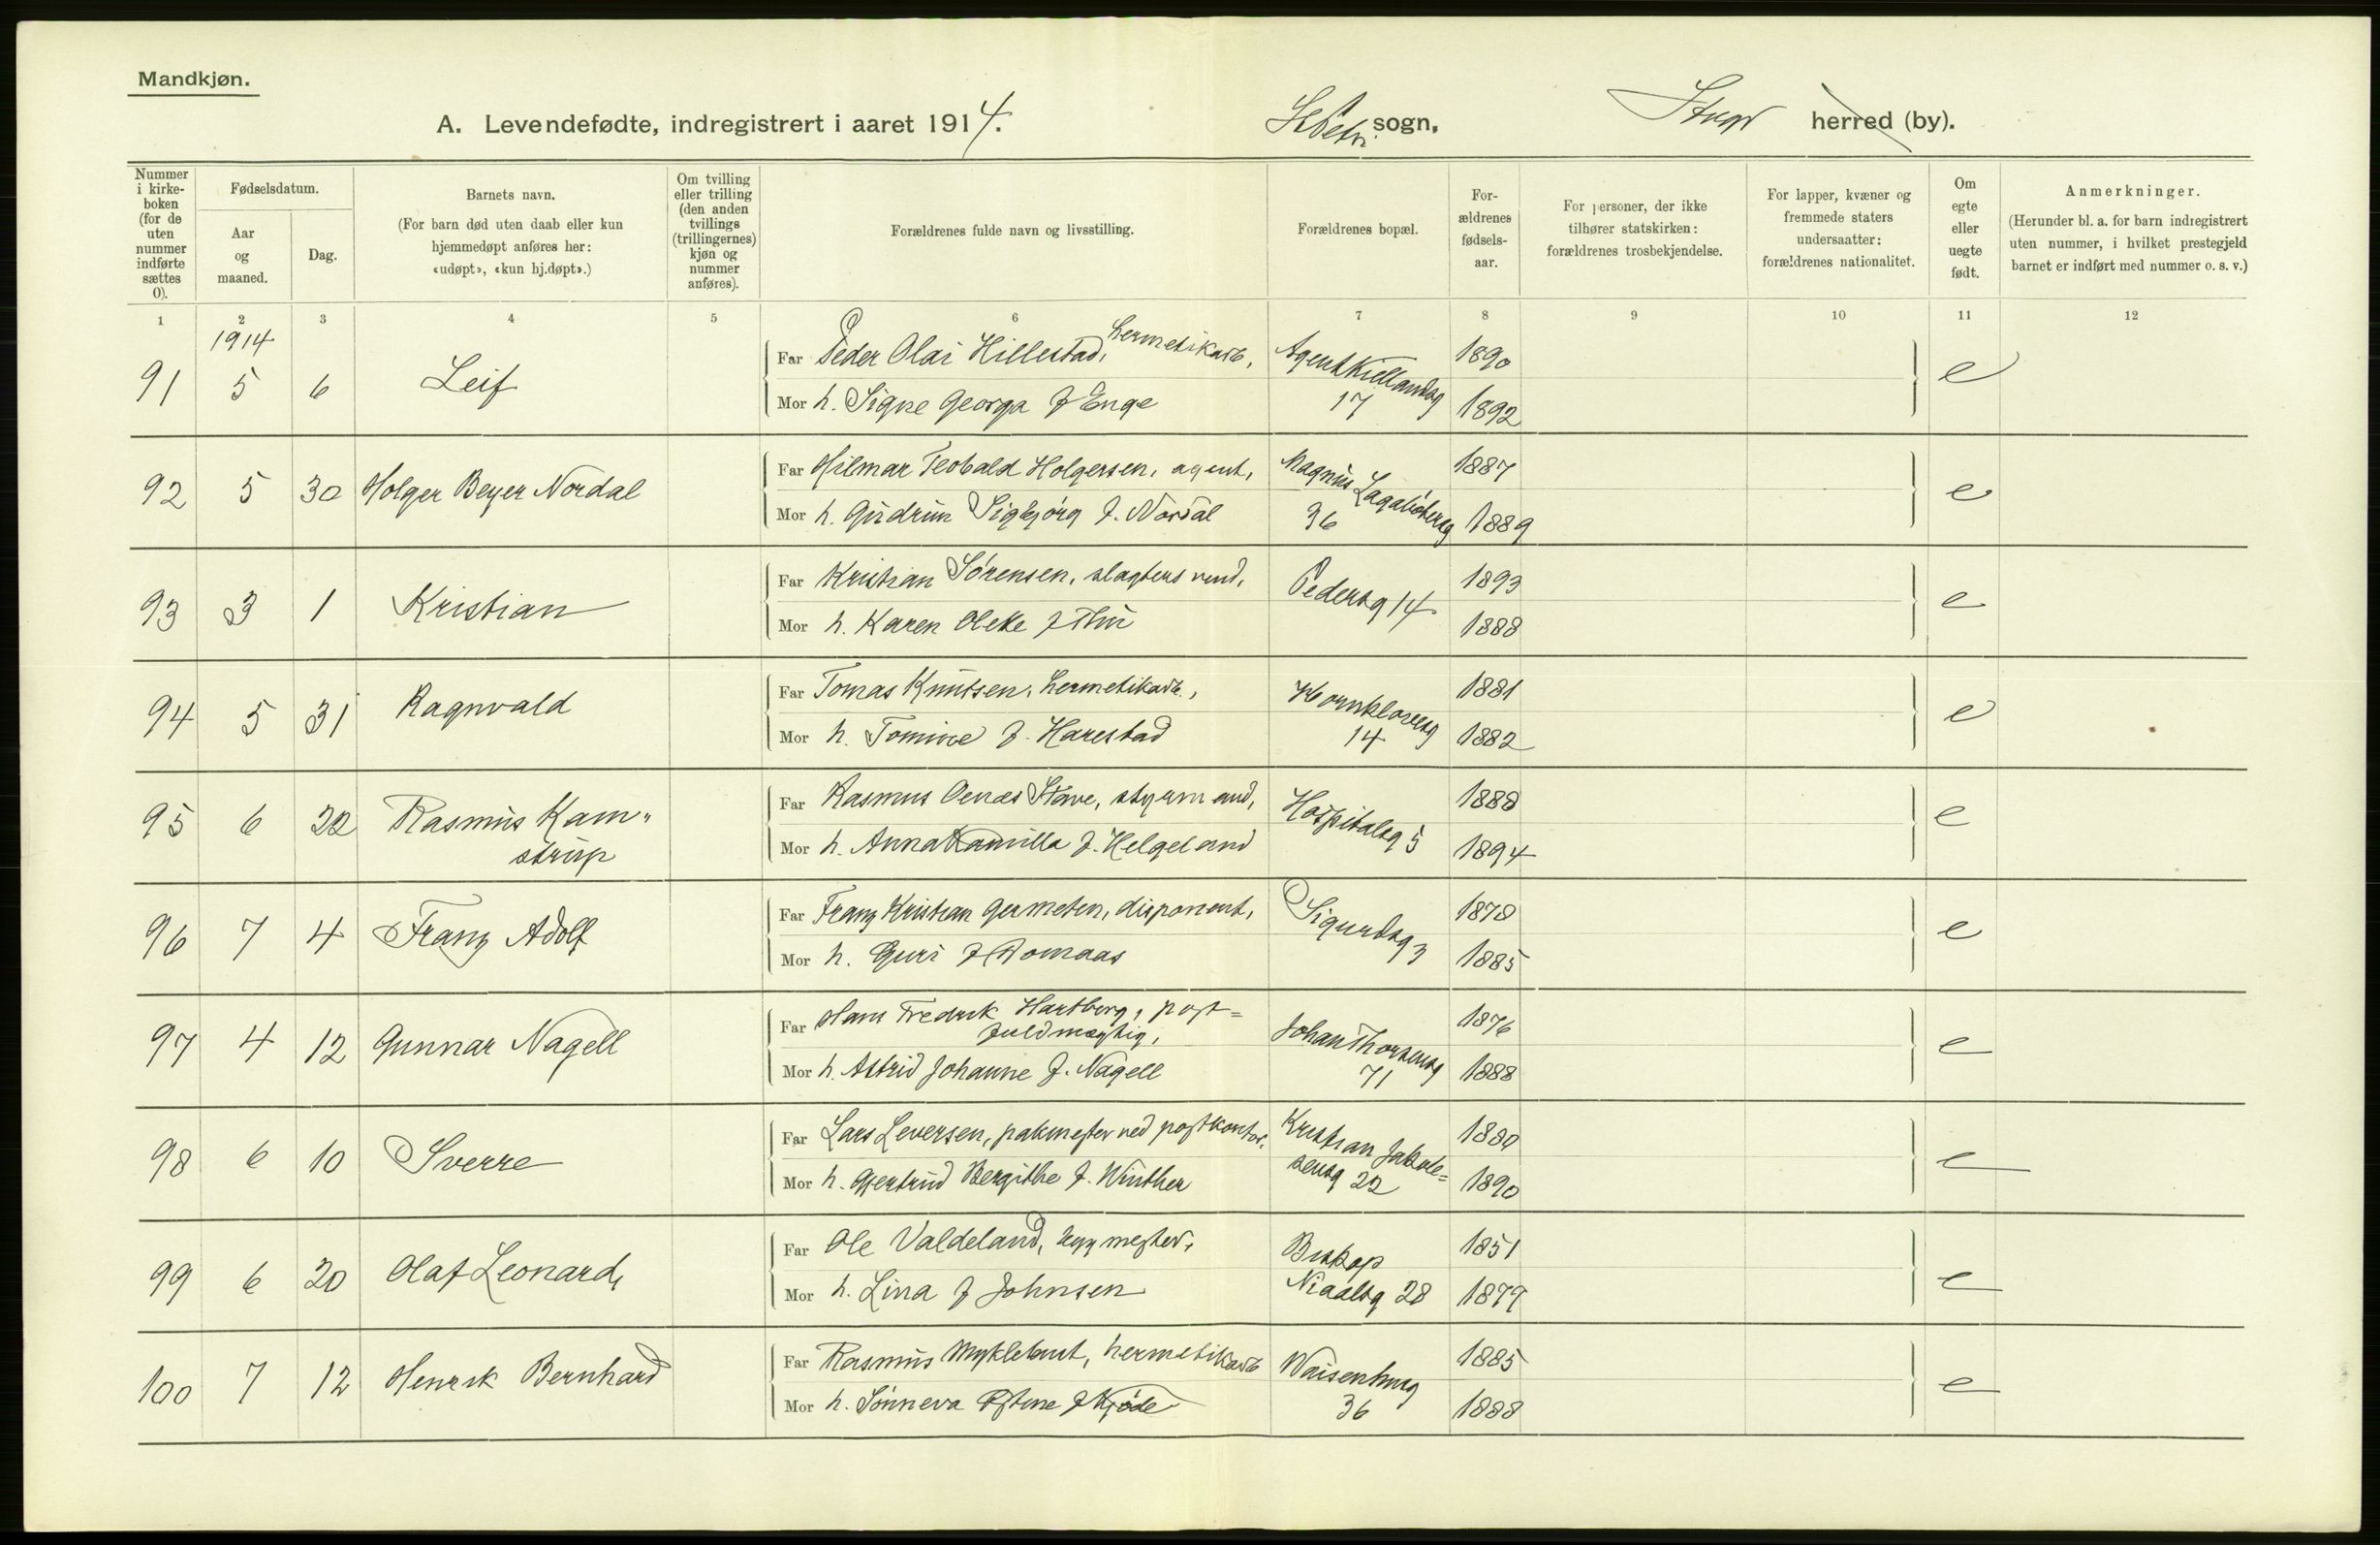 Mandkjøn.
A. Levendefødte, indregistrert i aaret 1914.
St Petri sogn,
Stvgr herred (by).
Nummer i kirke-boken (for de uten nummer indførte sættes 0).
Fødselsdatum.
Aar og maaned.
Dag.
Barnets navn.
(For barn død uten daab eller kun hjemmedøpt anføres her: «udøpt», «kun hj.døpt».)
Om tvilling eller trilling (den anden tvillings (trillingernes) kjøn og nummer anføres).
Forældrenes fulde navn og livsstilling.
Forældrenes bopæl.
For-ældrenes fødsels-aar.
For personer, der ikke tilhører statskirken: forældrenes trosbekjendelse.
For lapper, kvæner og fremmede staters undersaatter: forældrenes nationalitet.
Om egte eller uegte født.
Anmerkninger.
(Herunder bl. a. for barn indregistrert uten nummer, i hvilket prestegjeld barnet er indført med nummer o. s. v.)
1 2 3 4 5 6 7 8 9 10 11 12
1914
91 5 6 Leif
Far Peder Olai Hillestad, hermetikarb., Agent Kiellandsg 17 1890
Mor h. Signe Georga f Enge 1892
e
92 5 30 Holger Beyer Nordal
Far Hilmar Teobald Holgersen, agent, Magnus Lagabøtersg 36 1887
Mor h. Gudrun Sigbjørg f. Nordal 1889
e
93 3 1 Kristian
Far Kristian Sørensen, slagtersvend, Pedersg 14 1893
Mor h. Karen Oleke f Thu 1888
e
94 5 31 Ragnvald
Far Tomas Knutsen, hermetikarb., Hornklovesg 14 1881
Mor h. Tomine f. Harestad 1882
e
95 6 22 Rasmus Kam"
strup
Far Rasmus Aenæs Stave, styrmand, Hospitalsg 5 1888
Mor h. Anna Kamilla f. Helgeland 1894
e
96 7 4 Franz Adolf
Far Franz Kristian Germeten, disponent, Sigurdsg 3 1878
Mor h. Guri f Romaas 1885
e
97 4 12 Gunnar Nagell
Far Hans Fredrik Hartberg, post=
fuldmægtig, Johan Thorsensg 71 1876
Mor h. Astrid Johanne f. Nagell 1888
e
98 6 10 Sverre
Far Lars Leversen, pakmester ved postkontor. Kristian Jakob=
sensg 22 1880
Mor h. Gjertrud Bergithe f. Winther 1890
e
99 6 20 Olaf Leonard
Far Ole Valdeland, bygmester, Biskop
Niaalsg 28 1851
Mor h. Lina f Johnsen 1879
e
100 7 12 Henrik Bernhard
Far Rasmus Myklebust, hermetikarb Waisenhusg 36 1885
Mor h. Sønneva Østine f Kjøde 1888
e